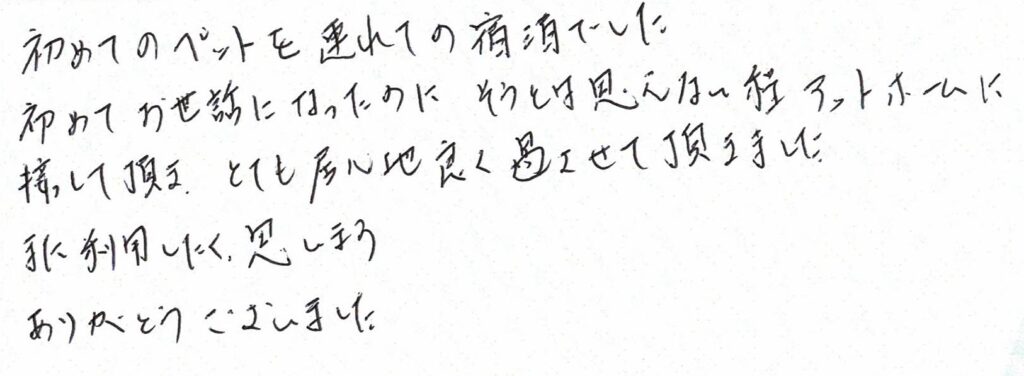 初めてのペットを連れての宿泊でした
初めてお世話になったのに そうとは思えない程 アットホームに
接して頂き、とても居心地良く過させて頂きました
また利用したく思います
ありがとうございました